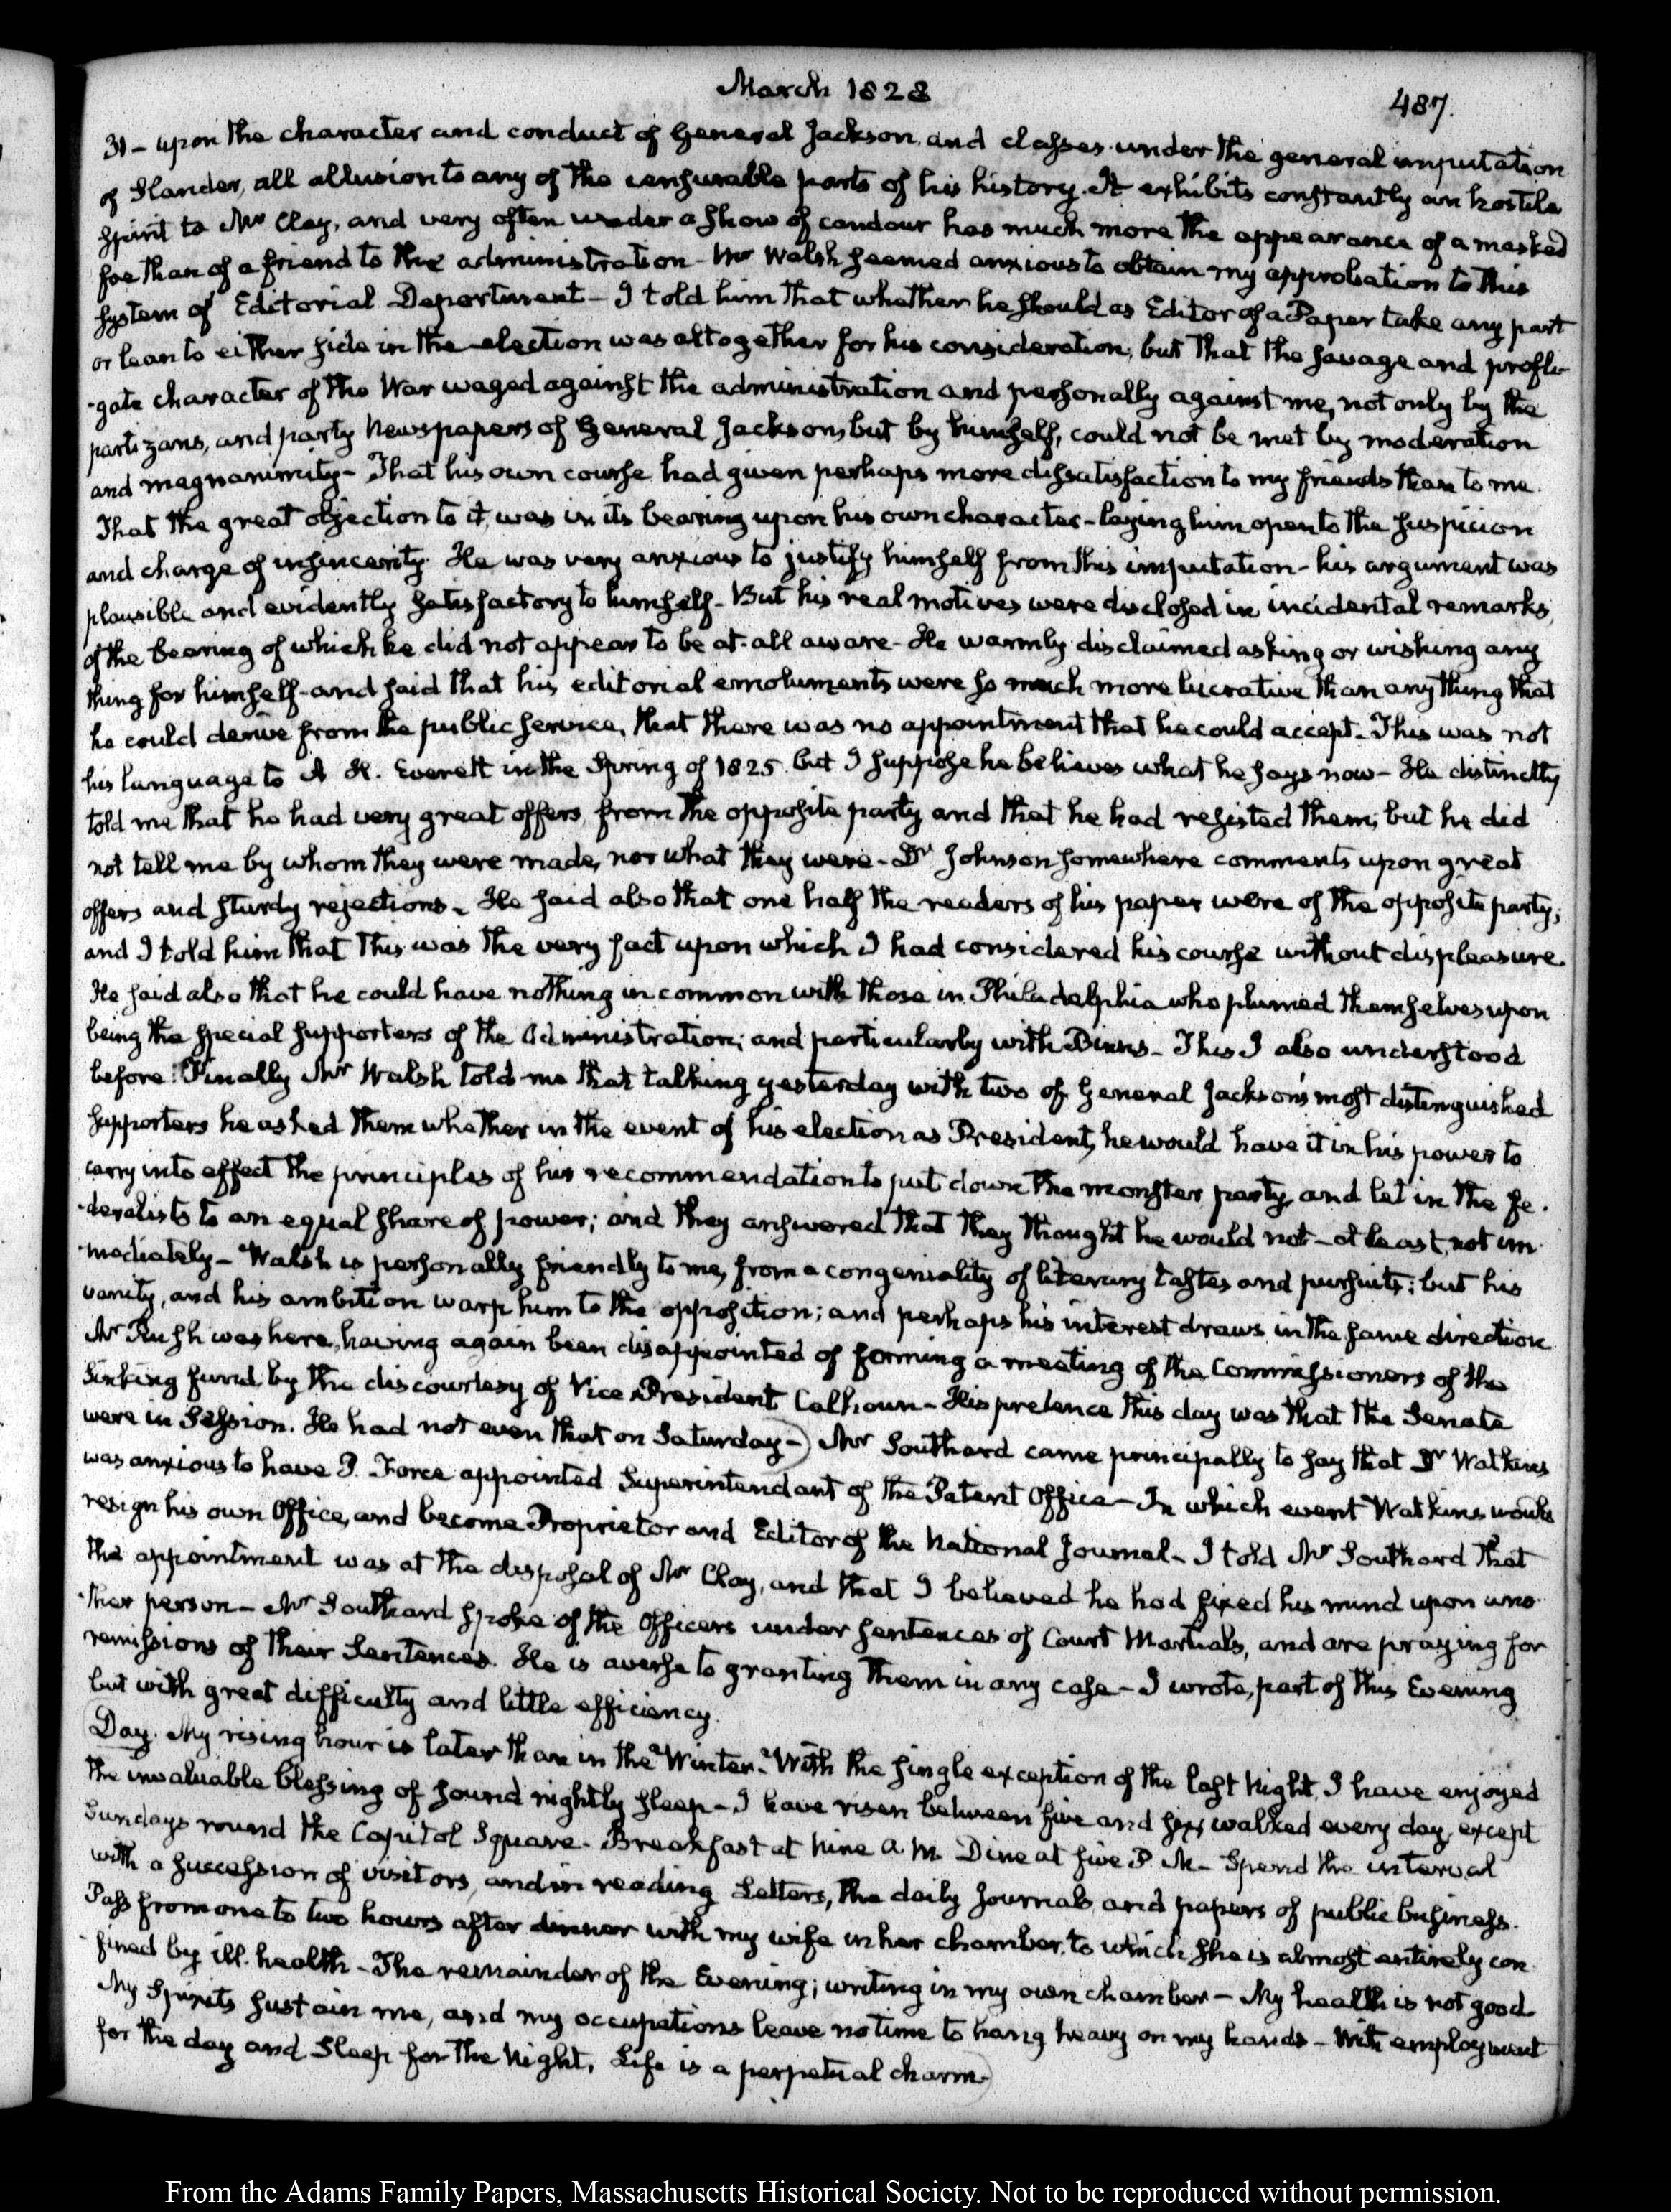 March 1828
487.
31 - upon the character and conduct of General Jackson, and classes under the general imputation
of Slander, all allusion to any of the censurable parts of his history. It exhibits constantly an hostile
spirit to Mr Clay, and very often under a show of candour has much more the appearance of a masked
foe than of a friend to the administration - Mr Walsh seemed anxious to obtain my approbation to this
system of Editorial Deportment - I told him that whether he should as Editor of a Paper take any part
or lean to either side in the election was altogether for his consideration; but that the savage and profli-
-gate character of the War waged against the administration and personally against me, not only by the
partizans, and party Newspapers of General Jackson, but by himself, could not be met by moderation
and magnanimity - That his own course had given perhaps more dissatisfaction to my friends than to me.
That the great objection to it, was in its bearing upon his own character - laying him open to the suspicion
and charge of insincerity. He was very anxious to justify himself from this imputation - his argument was
plausible and evidently satisfactory to himself - But his real motives were disclosed in incidental remarks,
of the bearing of which he did not appear to be at all aware - He warmly disclaimed asking or wishing any
thing for himself - and said that his editorial emoluments were so much more lucrative than any thing that
he could derive from the public service, that there was no appointment that he could accept - This was not
his language to A. H. Everett in the Spring of 1825. but I suppose he believes what he says now - He distinctly
told me that he had very great offers, from the opposite party and that he had resisted them; but he did
not tell me by whom they were made, nor what they were - Dr Johnson somewhere comments upon great
offers and sturdy rejections - He said also that one half the readers of his paper were of the opposite party;
and I told him that this was the very fact upon which I had considered his course without displeasure.
He said also that he could have nothing in common with those in Philadelphia who plumed themselves upon
being the special supporters of the Administration; and particularly with Binns - This I also understood
before. Finally Mr Walsh told me that talking yesterday with two of General Jackson's most distinguished
supporters he asked them whether in the event of his election as President, he would have it in his power to
carry into effect the principles of his recommendation to put down the monster party, and let in the fe-
-deralists to an equal share of power; and they answered that they thought he would not - at least, not im-
-mediately - Walsh is personally friendly to me, from a congeniality of literary tastes and pursuits; but his
vanity, and his ambition warp him to the opposition; and perhaps his interest draws in the same direction.
Mr Rush was here, having again been disappointed of forming a meeting of the Commissioners of the
Sinking fund by the discourtesy of Vice President Calhoun - His pretence this day was that the Senate
were in Session. He had not even that on Saturday -) Mr Southard came principally to say that Dr Watkins
was anxious to have P. Force appointed Superintendant of the Patent Office - In which event Watkins would
resign his own Office, and become Proprietor and Editor of the National Journal - I told Mr Southard that
the appointment was at the disposal of Mr Clay, and that I believed he had fixed his mind upon ano-
-ther person - Mr Southard spoke of the Officers under sentences of Court Martials, and are praying for
remissions of their Sentences. He is averse to granting them in any case - I wrote, part of this Evening
but with great difficulty and little efficiency.
Day. My rising hour is later than in the Winter. With the single exception of the last Night, I have enjoyed
the invaluable blessing of sound nightly sleep - I have risen between five and six, walked every day, except
Sundays round the Capitol Square - Breakfast at Nine A. M. Dine at five P. M - Spend the interval
with a succession of visitors, and in reading Letters, the daily Journals and papers of public business.
Pass from one to two hours after dinner with my wife in her chamber, to which she is almost entirely con-
-fined by ill health - The remainder of the Evening; writing in my own chamber - My health is not good
My Spirits sustain me, and my occupations leave no time to hang heavy on my hands - With employment
for the day and Sleep for the Night, Life is a perpetual charm.)
From the Adams Family Papers, Massachusetts Historical Society. Not to be reproduced without permission.